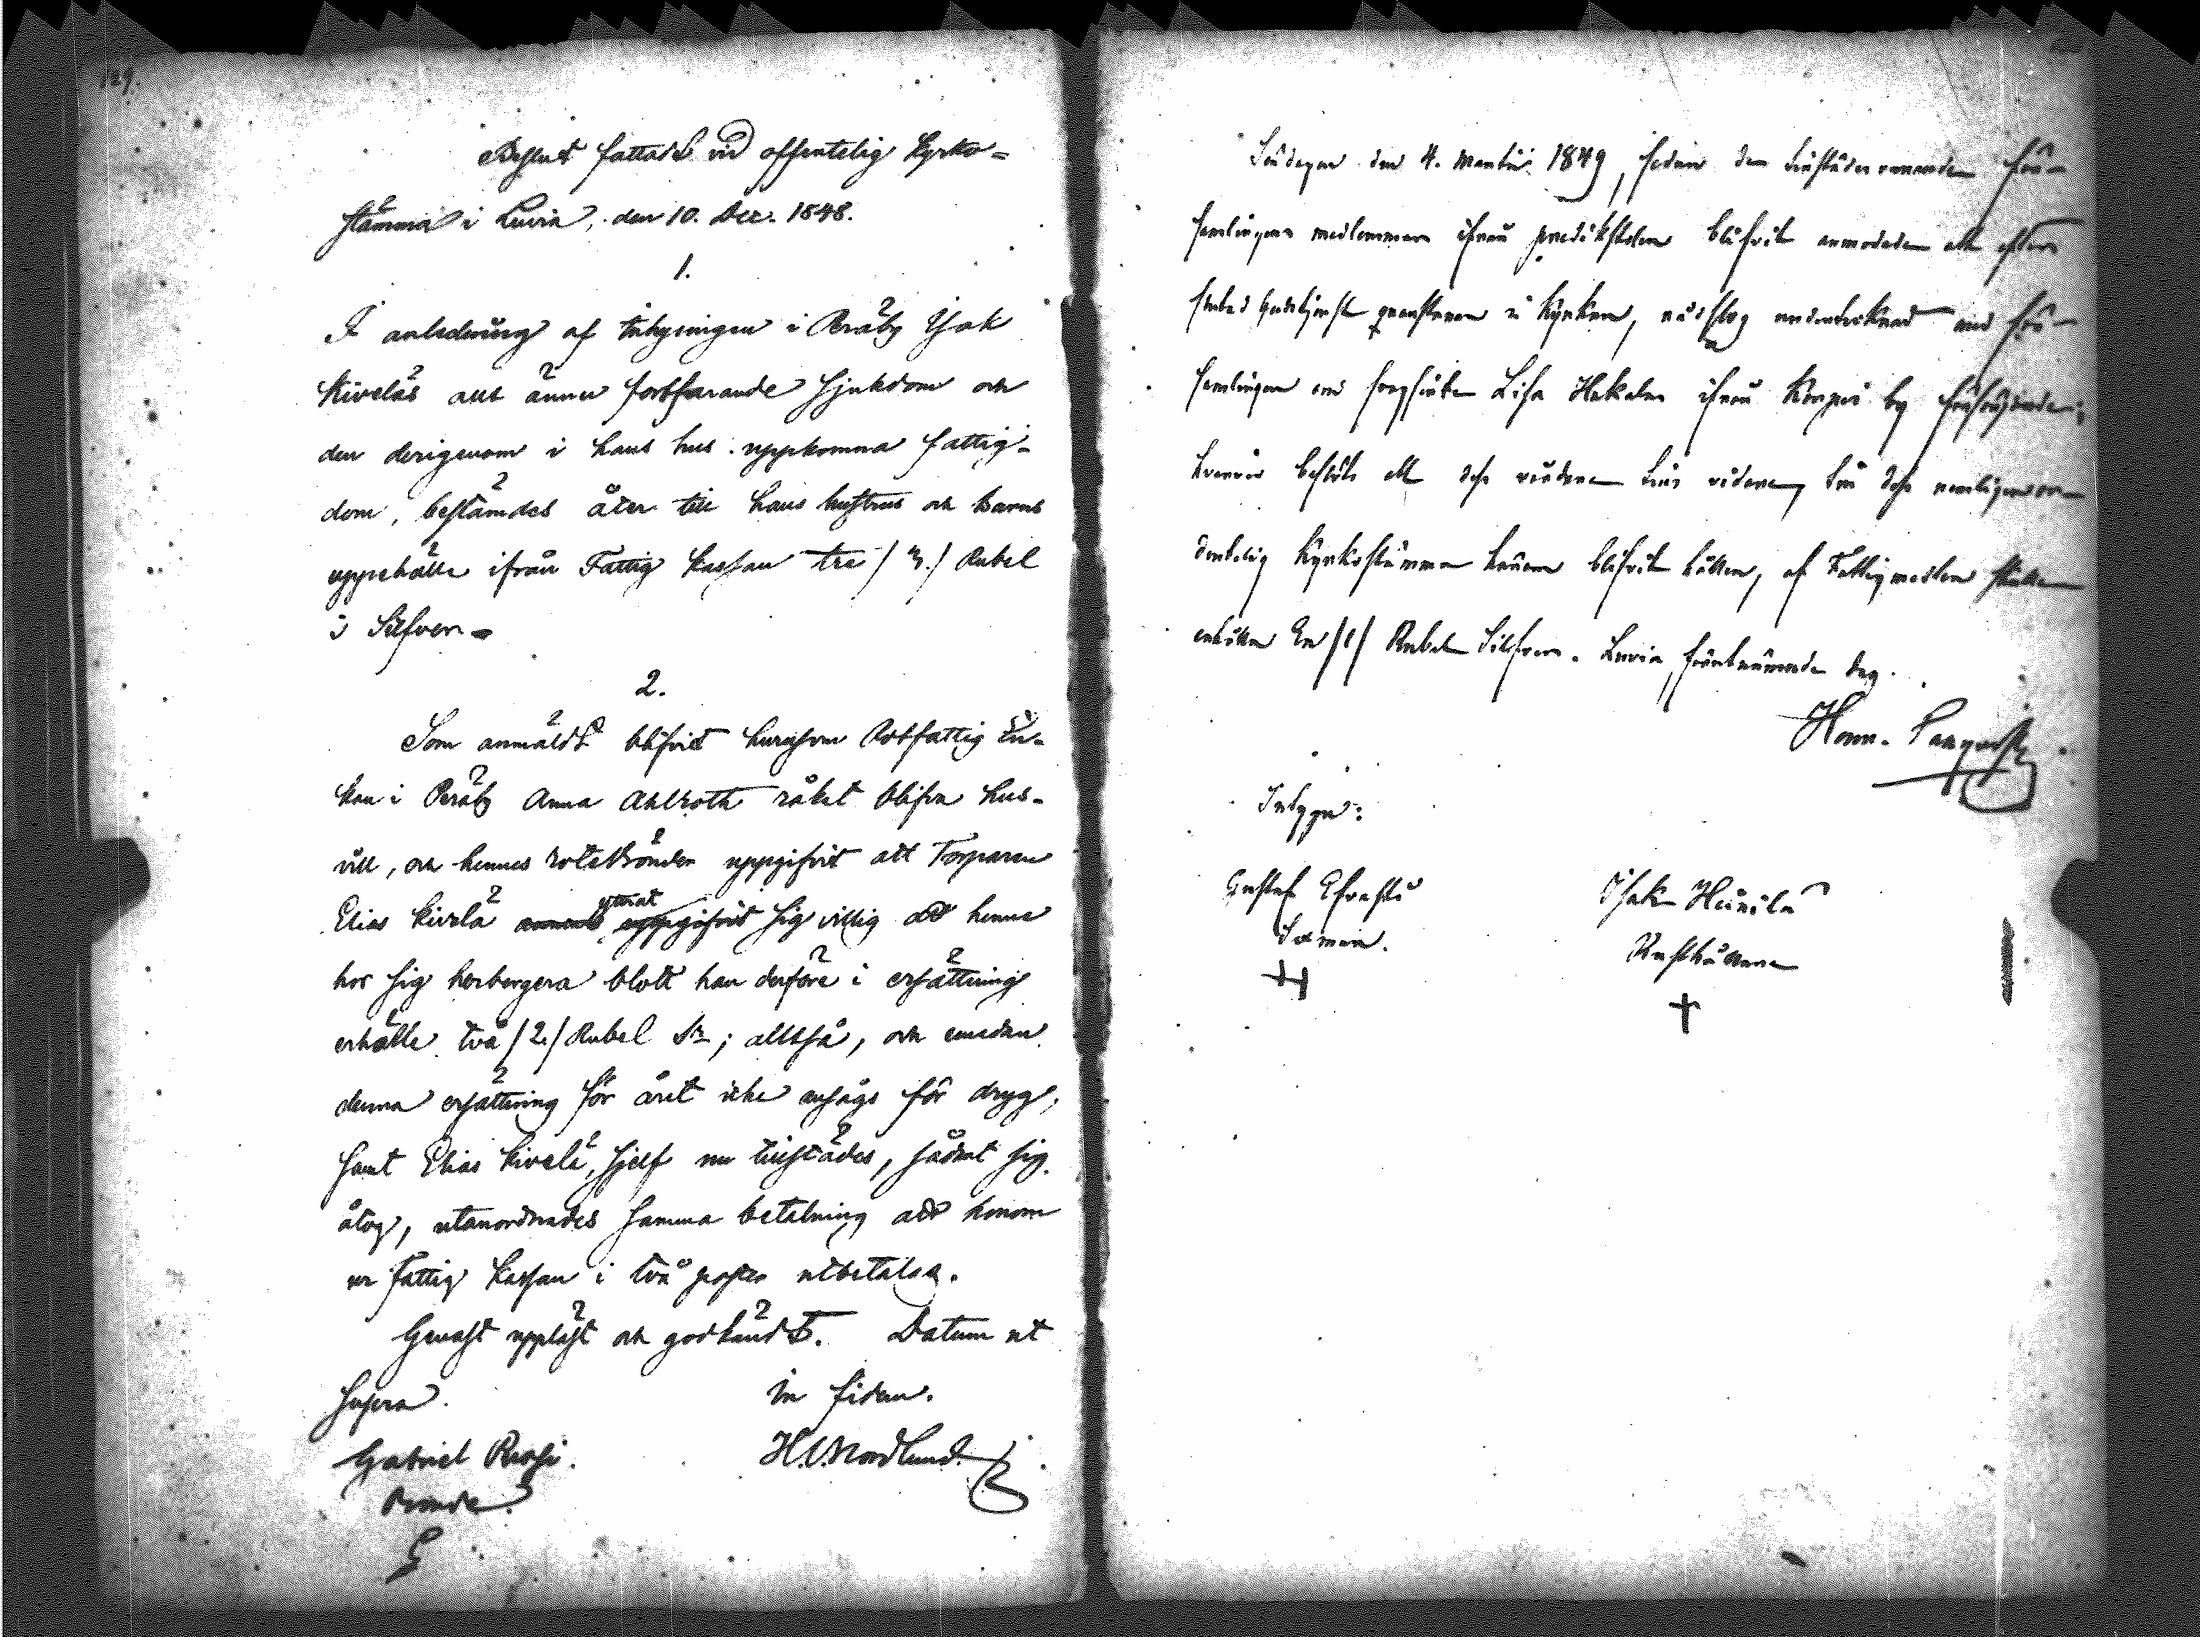 129.
Beslut fattadt vid offentelig Kyrko-
stämma i Luvia, den 10. Dec. 1848.
1.
I anledning af inhysingen i Peräby Isak
Kiveläs allt ännu fortfarande sjukdom och
den derigenom i hans hus uppkomna fattig-
dom, bestämdes åter till hans hustrus och barns
uppehälle ifrån Fattig Kassan tre /3./ Rubel
i Silfver.
2.
Som anmäldt blifvit hurusom Rotfattig En-
kan i Peräby Anna Ahlroth råkat blifva hus-
vill, och hennes rotebönder uppgifvit att Torparen
Elias Kivelä yttrat sig villig att henne
hos sig herbergera blott han derföre i ersättning
erhålle två /2./ Rubel Sr; alltså, och emedan
denna ersättning för året icke ansågs för dryg,
samt Elias Kivelä, sjelf nu tillstädes, sådant sig
åtog, utanordnades samma betalning att honom
ur fattig Kassan i två poster utbetalas.
Genast uppläst och godkändt. Datum ut
supra. in fidem.
Gabriel Rossi. H.U. Nordlund.
Bonde.
Söndagen den 4. Martii 1849, sedan de tillstädesvarande för-
samlingens medlemmar ifrån predikstolen blifvit anmodade att efter
slutad Gudstjenst qvarstanna i Kyrkan, rådslog undertecknad med för-
samlingen om Lisa Hakala ifrån Korpi by
hvarvid beslöts att
Kyrkostämma hunne blifvit hållen, af Fattigmedlen skulle
erhålla En /1/ Rubel Silfver. Luvia, förutnämnde dag.
Intyga:
Gustaf Isak Heinilä
Rusthållare